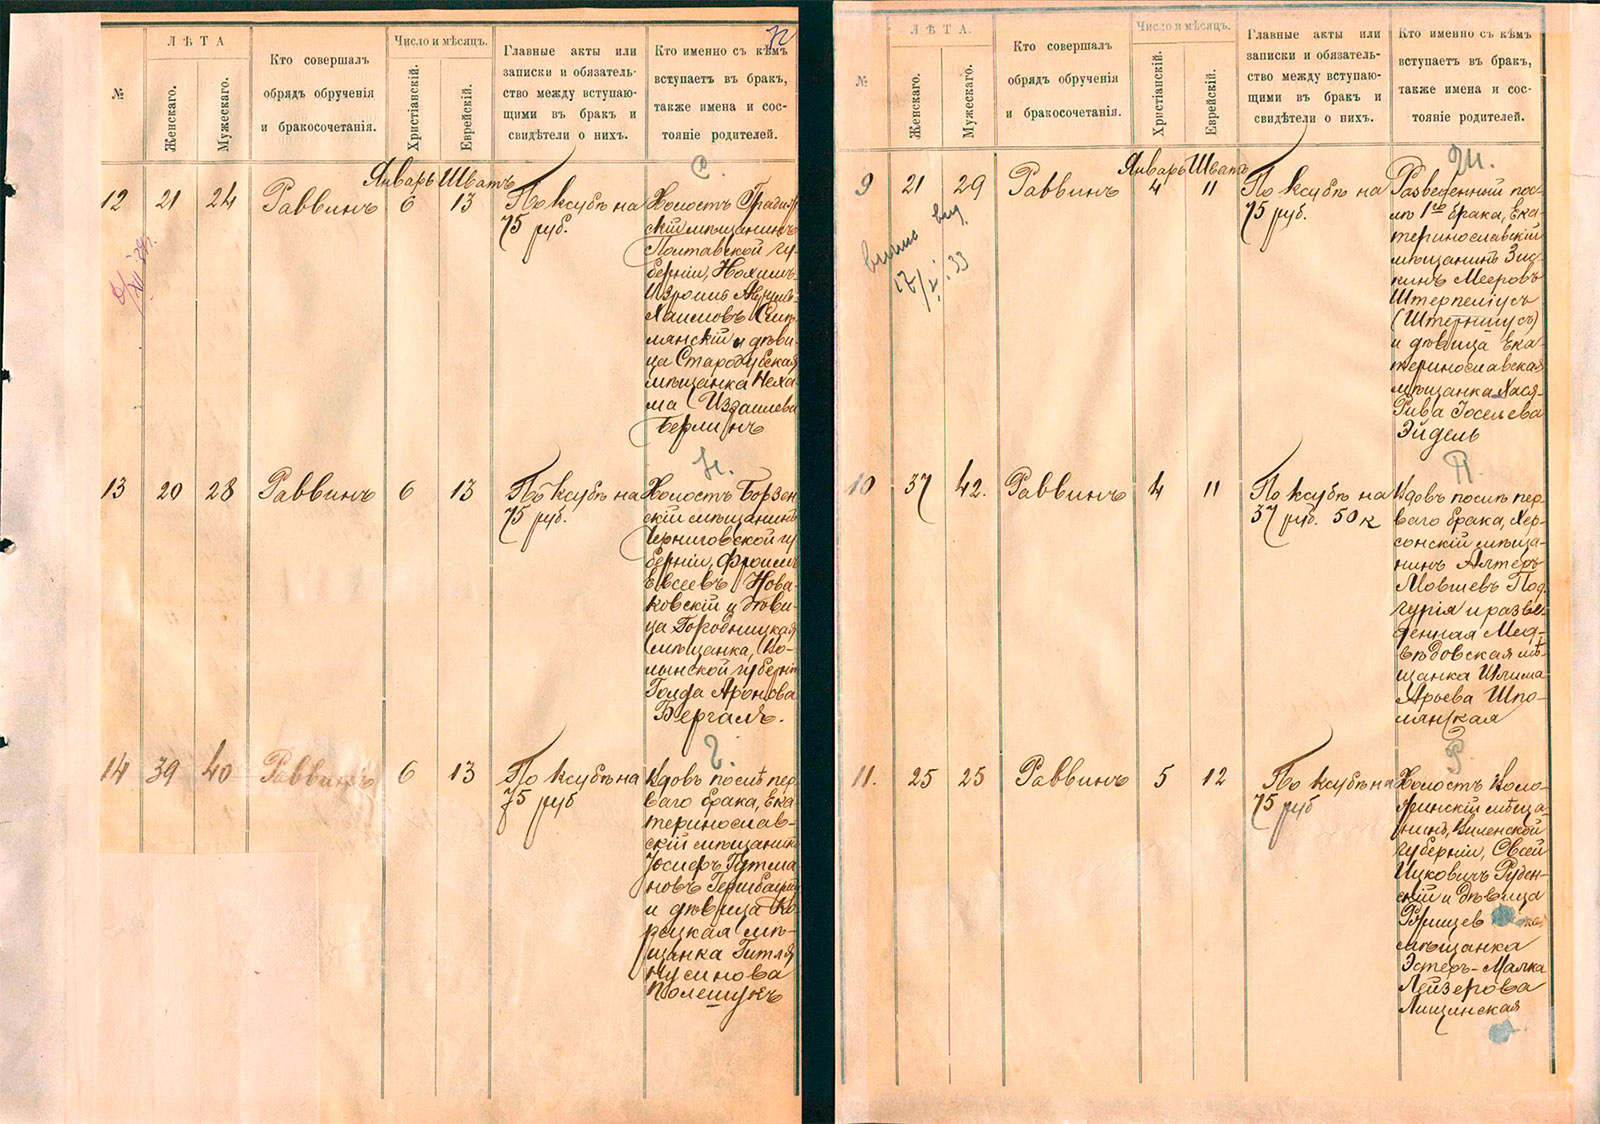 72
№
ЛѢТА
Женскаго.
Мужескаго.
Кто совершалъ
обрядъ обрученія
и бракосочетанія.
Число и мѣсяцъ.
Христіанскій.
Еврейскій.
Главные акты или
записки и обязатель-
ство между вступаю-
щими въ бракъ и
свидѣтели о нихъ.
Кто именно съ кѣмъ
вступаетъ въ бракъ,
также имена и сос-
тояніе родителей.
Январь Шватъ
С.
12 21 24 Раввинъ 6 13
По ксубѣ на
75 руб.
Холостъ Градиж-
скій мѣщанинъ
Полтавской гу-
берніи, Нохимъ
Изроиль
Хаимовъ
мянскій и дѣви-
ца Стародубская
мѣщанка Неха-
ма Издаилева
Берлинъ
Н.
13 20 28 Раввинъ 6 13
По ксубѣ на
75 руб.
Холостъ Борзен-
скій мѣщанинъ
Черниговской гу
берніи, Фроимъ
Евсеевъ Нова-
ковскій и дѣви-
ца Городницкая
мѣщанка, Во-
лынской губерніи
Голда Аронова
Бергалъ.
Г.
14 39 40 Раввинъ 6 13
По ксубѣ на
75 руб
Вдовъ послѣ пер-
ваго брака, Ека-
теринослав-
скій мѣщанинъ
Іосифъ
новъ
и дѣвица Ко-
рецкая мѣ-
щанка Гитля
Нусинова
Полешукъ
№
ЛѢТА.
Женскаго.
Мужескаго.
Кто совершалъ
обрядъ обрученія
и бракосочетанія.
Число и мѣсяцъ.
Христіанскій.
Еврейскій.
Главные акты или
записки и обязатель-
ство между вступаю-
щими въ бракъ и
свидѣтели о нихъ.
Кто именно съ кѣмъ
вступаетъ въ бракъ,
также имена и сос-
тояніе родителей.
Январь Шватъ
Ш.
9 21 29 Раввинъ 4 11
По ксубѣ на
75 руб.
Разведенный пос-
лѣ 1го брака, Ека-
теринославскій
мѣщанинъ Зис-
кинъ Мееровъ
Штерпеліусъ
(Штерниусъ)
и дѣвица Ека-
теринославская
мѣщанка Хася-
Рива Іоселева
Эйдель
П.
10 37 42. Раввинъ 4 11
По ксубѣ на
37 руб. 50 к
Вдовъ послѣ пер-
ваго брака, Хер-
сонскій мѣща-
нинъ Алтеръ
Мовшевъ Под-
гурія и разве-
денная Мед-
вѣдовская мѣ-
щанка Шлима
Арьева Шпо-
лянская
Р.
11. 25 25 Раввинъ 5 12
По ксубѣ на
75 руб
Холостъ Воло-
жинскій мѣща-
нинъ, Виленской
губерніи, Овсей
Ицковичъ Руден-
скій и дѣвица
мѣщанка
Эстеръ-Малка
Лейзерова
Лищинская